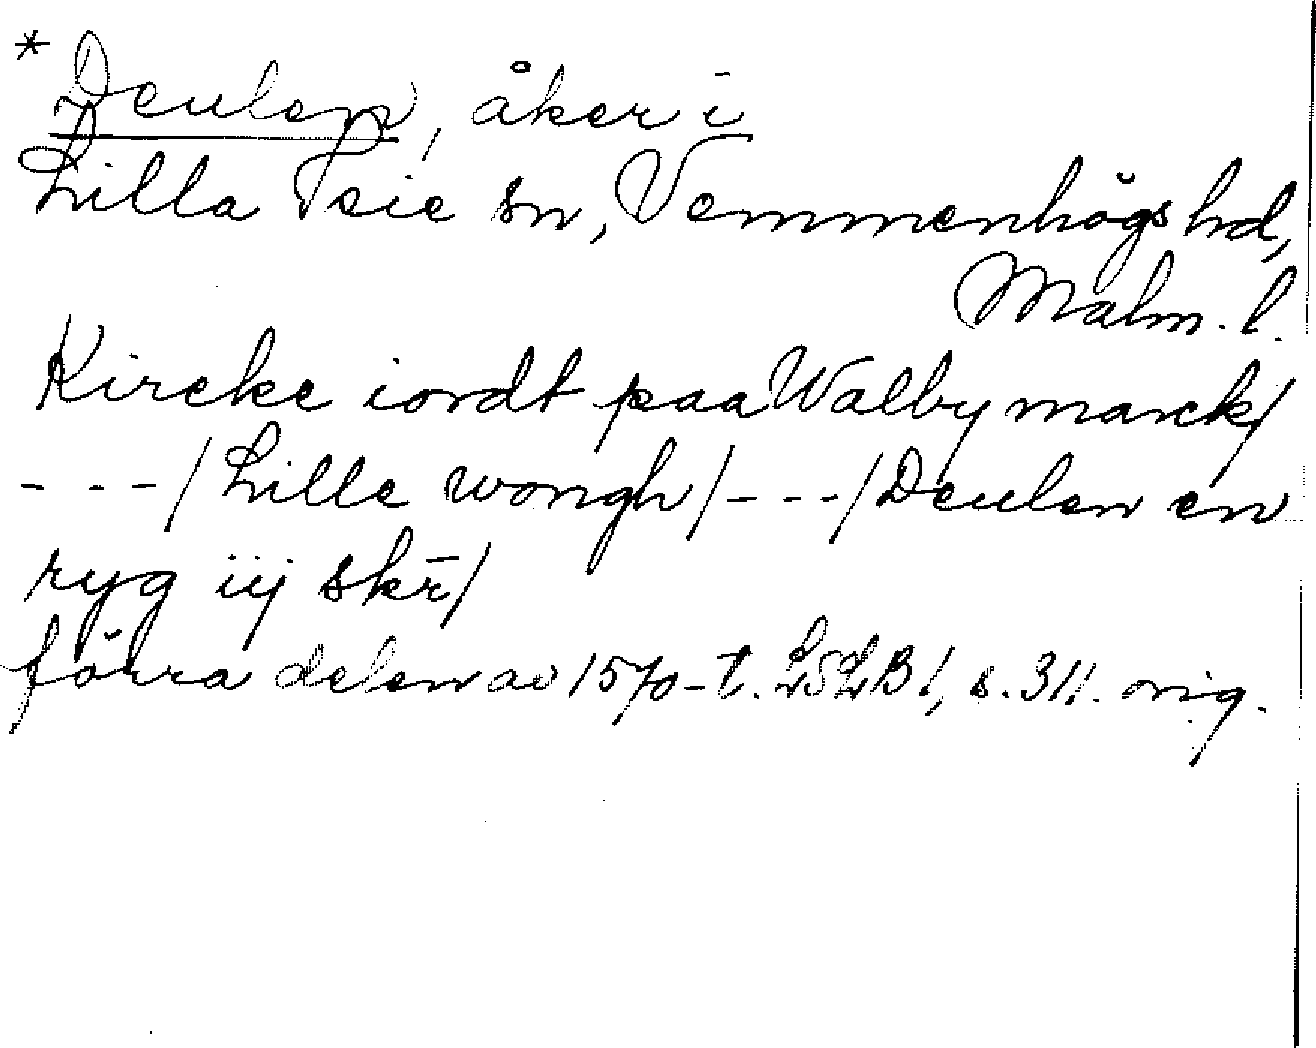 * Deulen, åker i
Lilla Isie sn, Vemmenhögs hd,
Malm. l.
Kircke iordt paa Walby marck/
- - - / Lille wongh / - - - / Deulen en
ryg iij skr̄/
förra delen av 1570-t. LSLB 1, s. 311. orig.